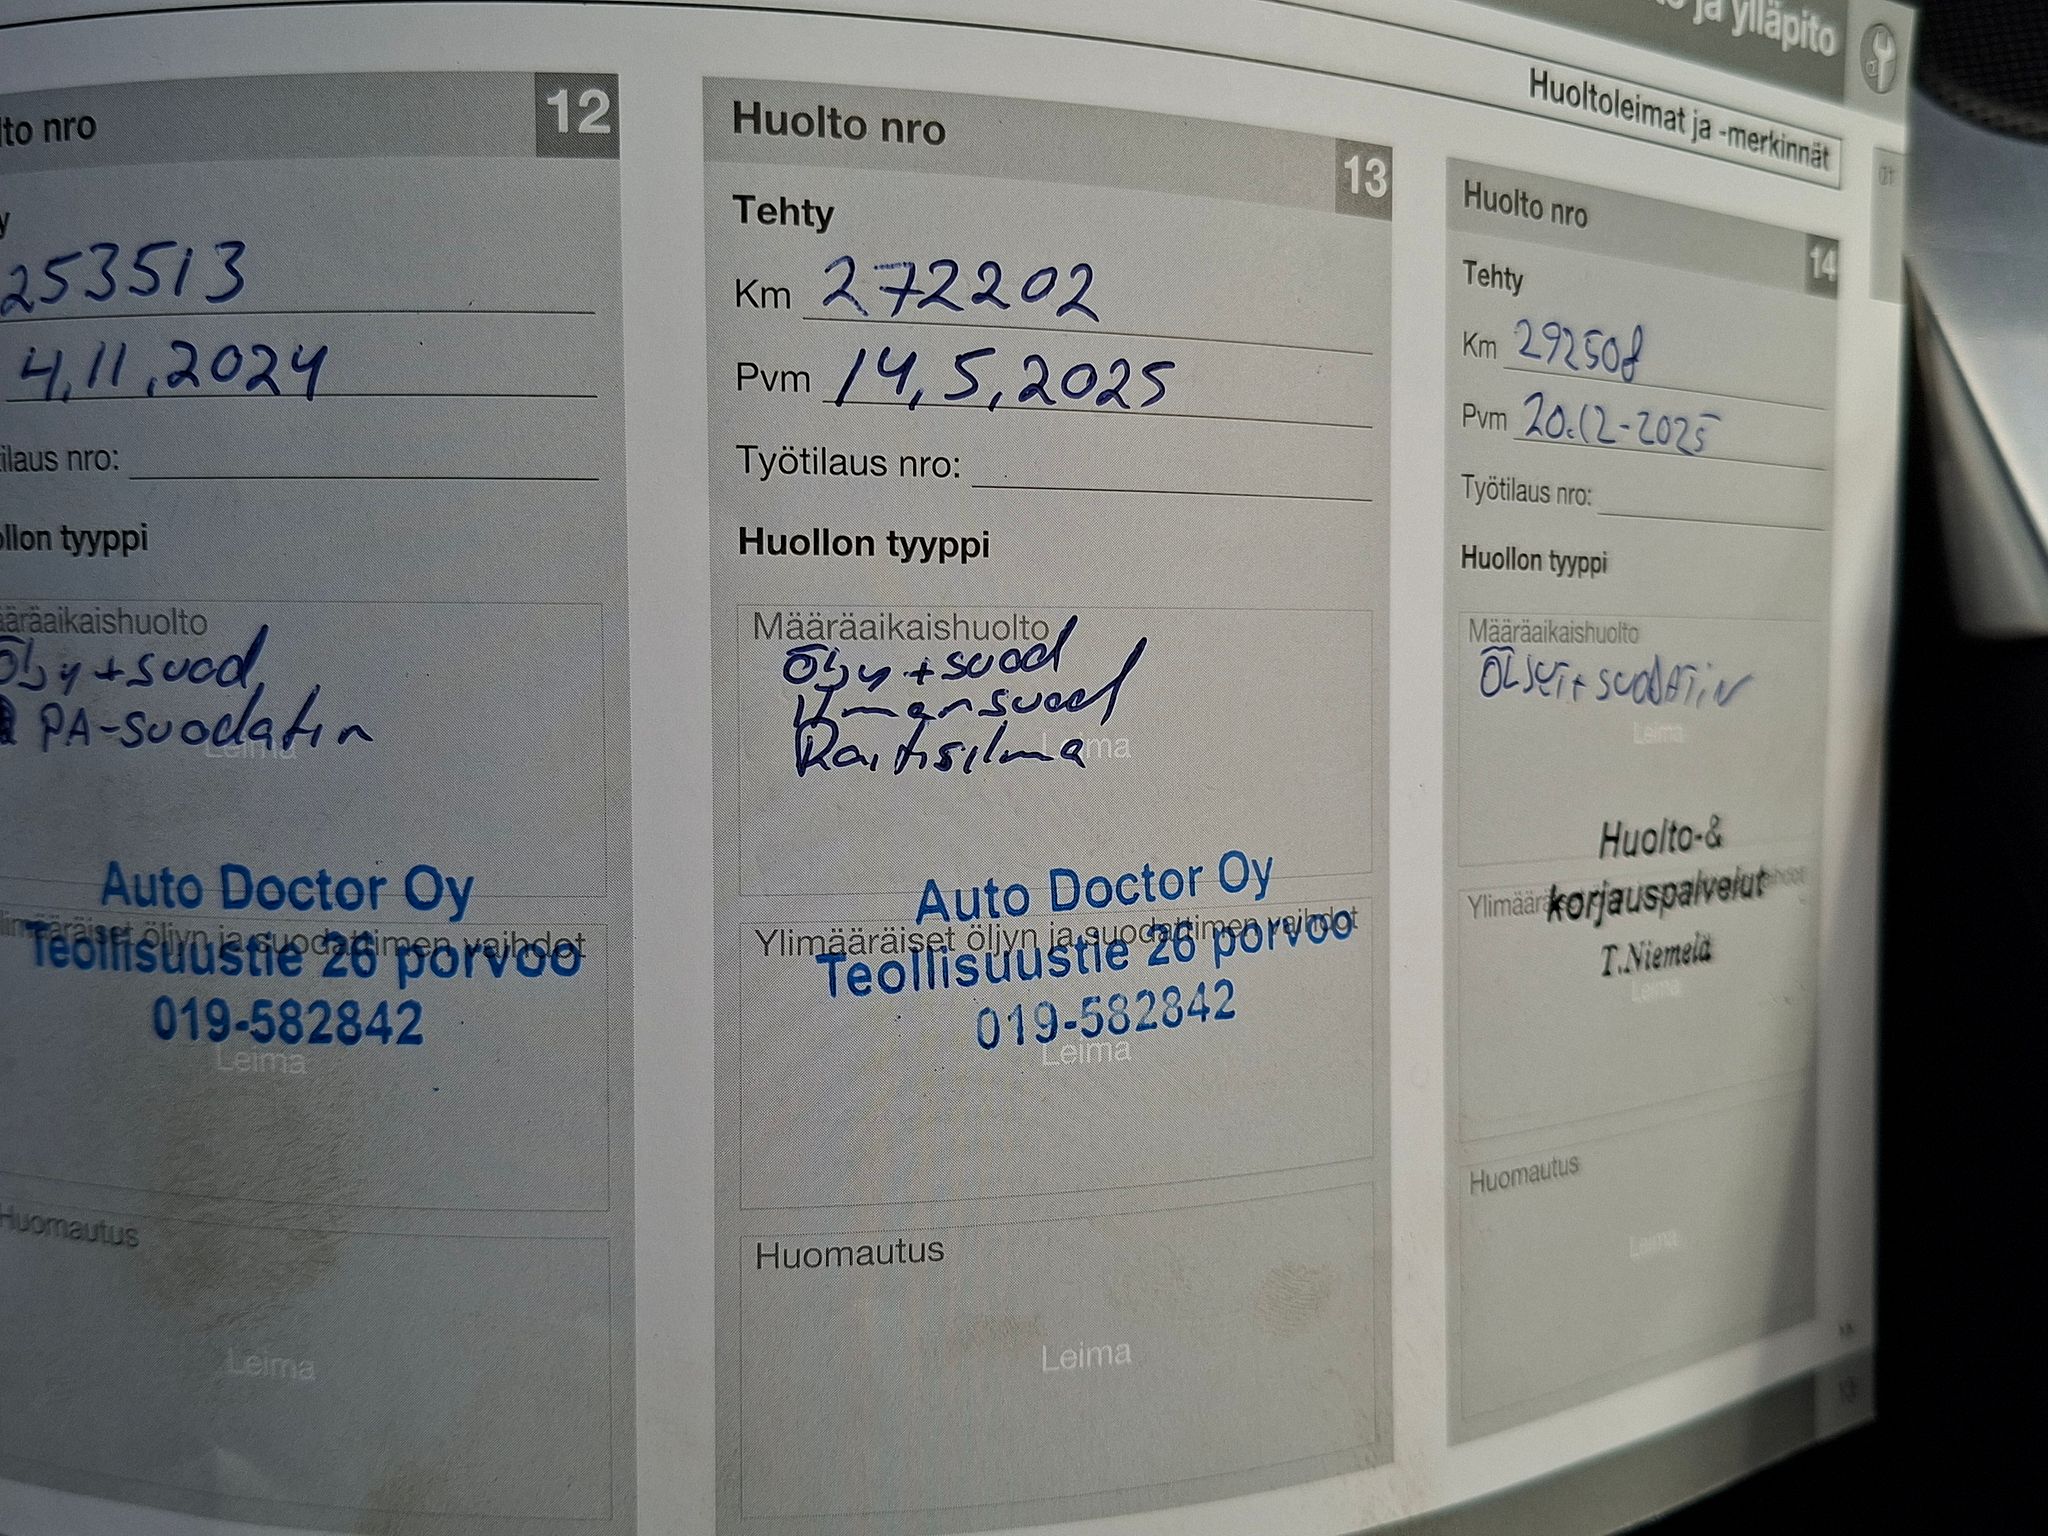 ja ylläpito
Huoltoleimat ja -merkinnät
lto nro 12
y
253513
4,11,2024
ilaus nro:
llon tyyppi
ääräaikaishuolto
Öljy+suod
PA-suodatin
Leima
Auto Doctor Oy
limääräiset öljyn ja suodattimen vaihdot
Teollisuustie 26 porvoo
019-582842
Leima
Huomautus
Leima
Huolto nro 13
Tehty
Km 272202
Pvm 14,5,2025
Työtilaus nro:
Huollon tyyppi
Määräaikaishuolto
Öljy+suod
Ilmansuod
Raitisilma
Leima
Auto Doctor Oy
Ylimääräiset öljyn ja suodattimen vaihdot
Teollisuustie 26 porvoo
019-582842
Leima
Huomautus
Leima
Huolto nro 14
Tehty
Km 292508
Pvm 20.12-2025
Työtilaus nro:
Huollon tyyppi
Määräaikaishuolto
Öljyt+suodatin
Leima
Huolto-&
korjauspalvelut
T.Niemelä
Leima
Huomautus
Leima